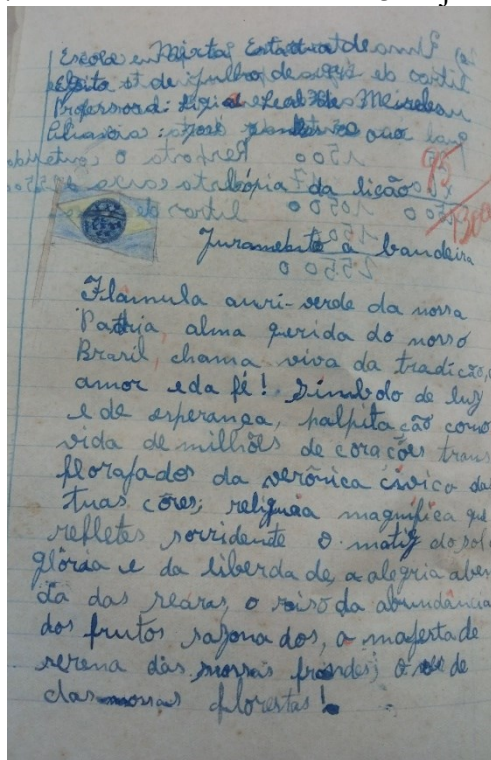 Escola en Mixta Estadual de
de Julho de 1942
Professora: Ligia Leal des Meireles
85
Cópia da lição
Bôa
Juramento a bandeira
Flâmula auri-verde da nossa
Patria, alma querida do nosso
Brasil, chama viva da tradição,
amor e da fé! Simbolo de luz
e de esperança, palpitação como
vida de milhões de corações trans
florafados da verônica civica da
tuas côres; reliquia magnifica que
refletes sorridente o matiz do sol
glória e da liberda de, a alegria aben
da das searas, o riso da abundancia
dos frutos sazona dos, a magesta de
serena das nossas frondes; o de
das nossas florestas!